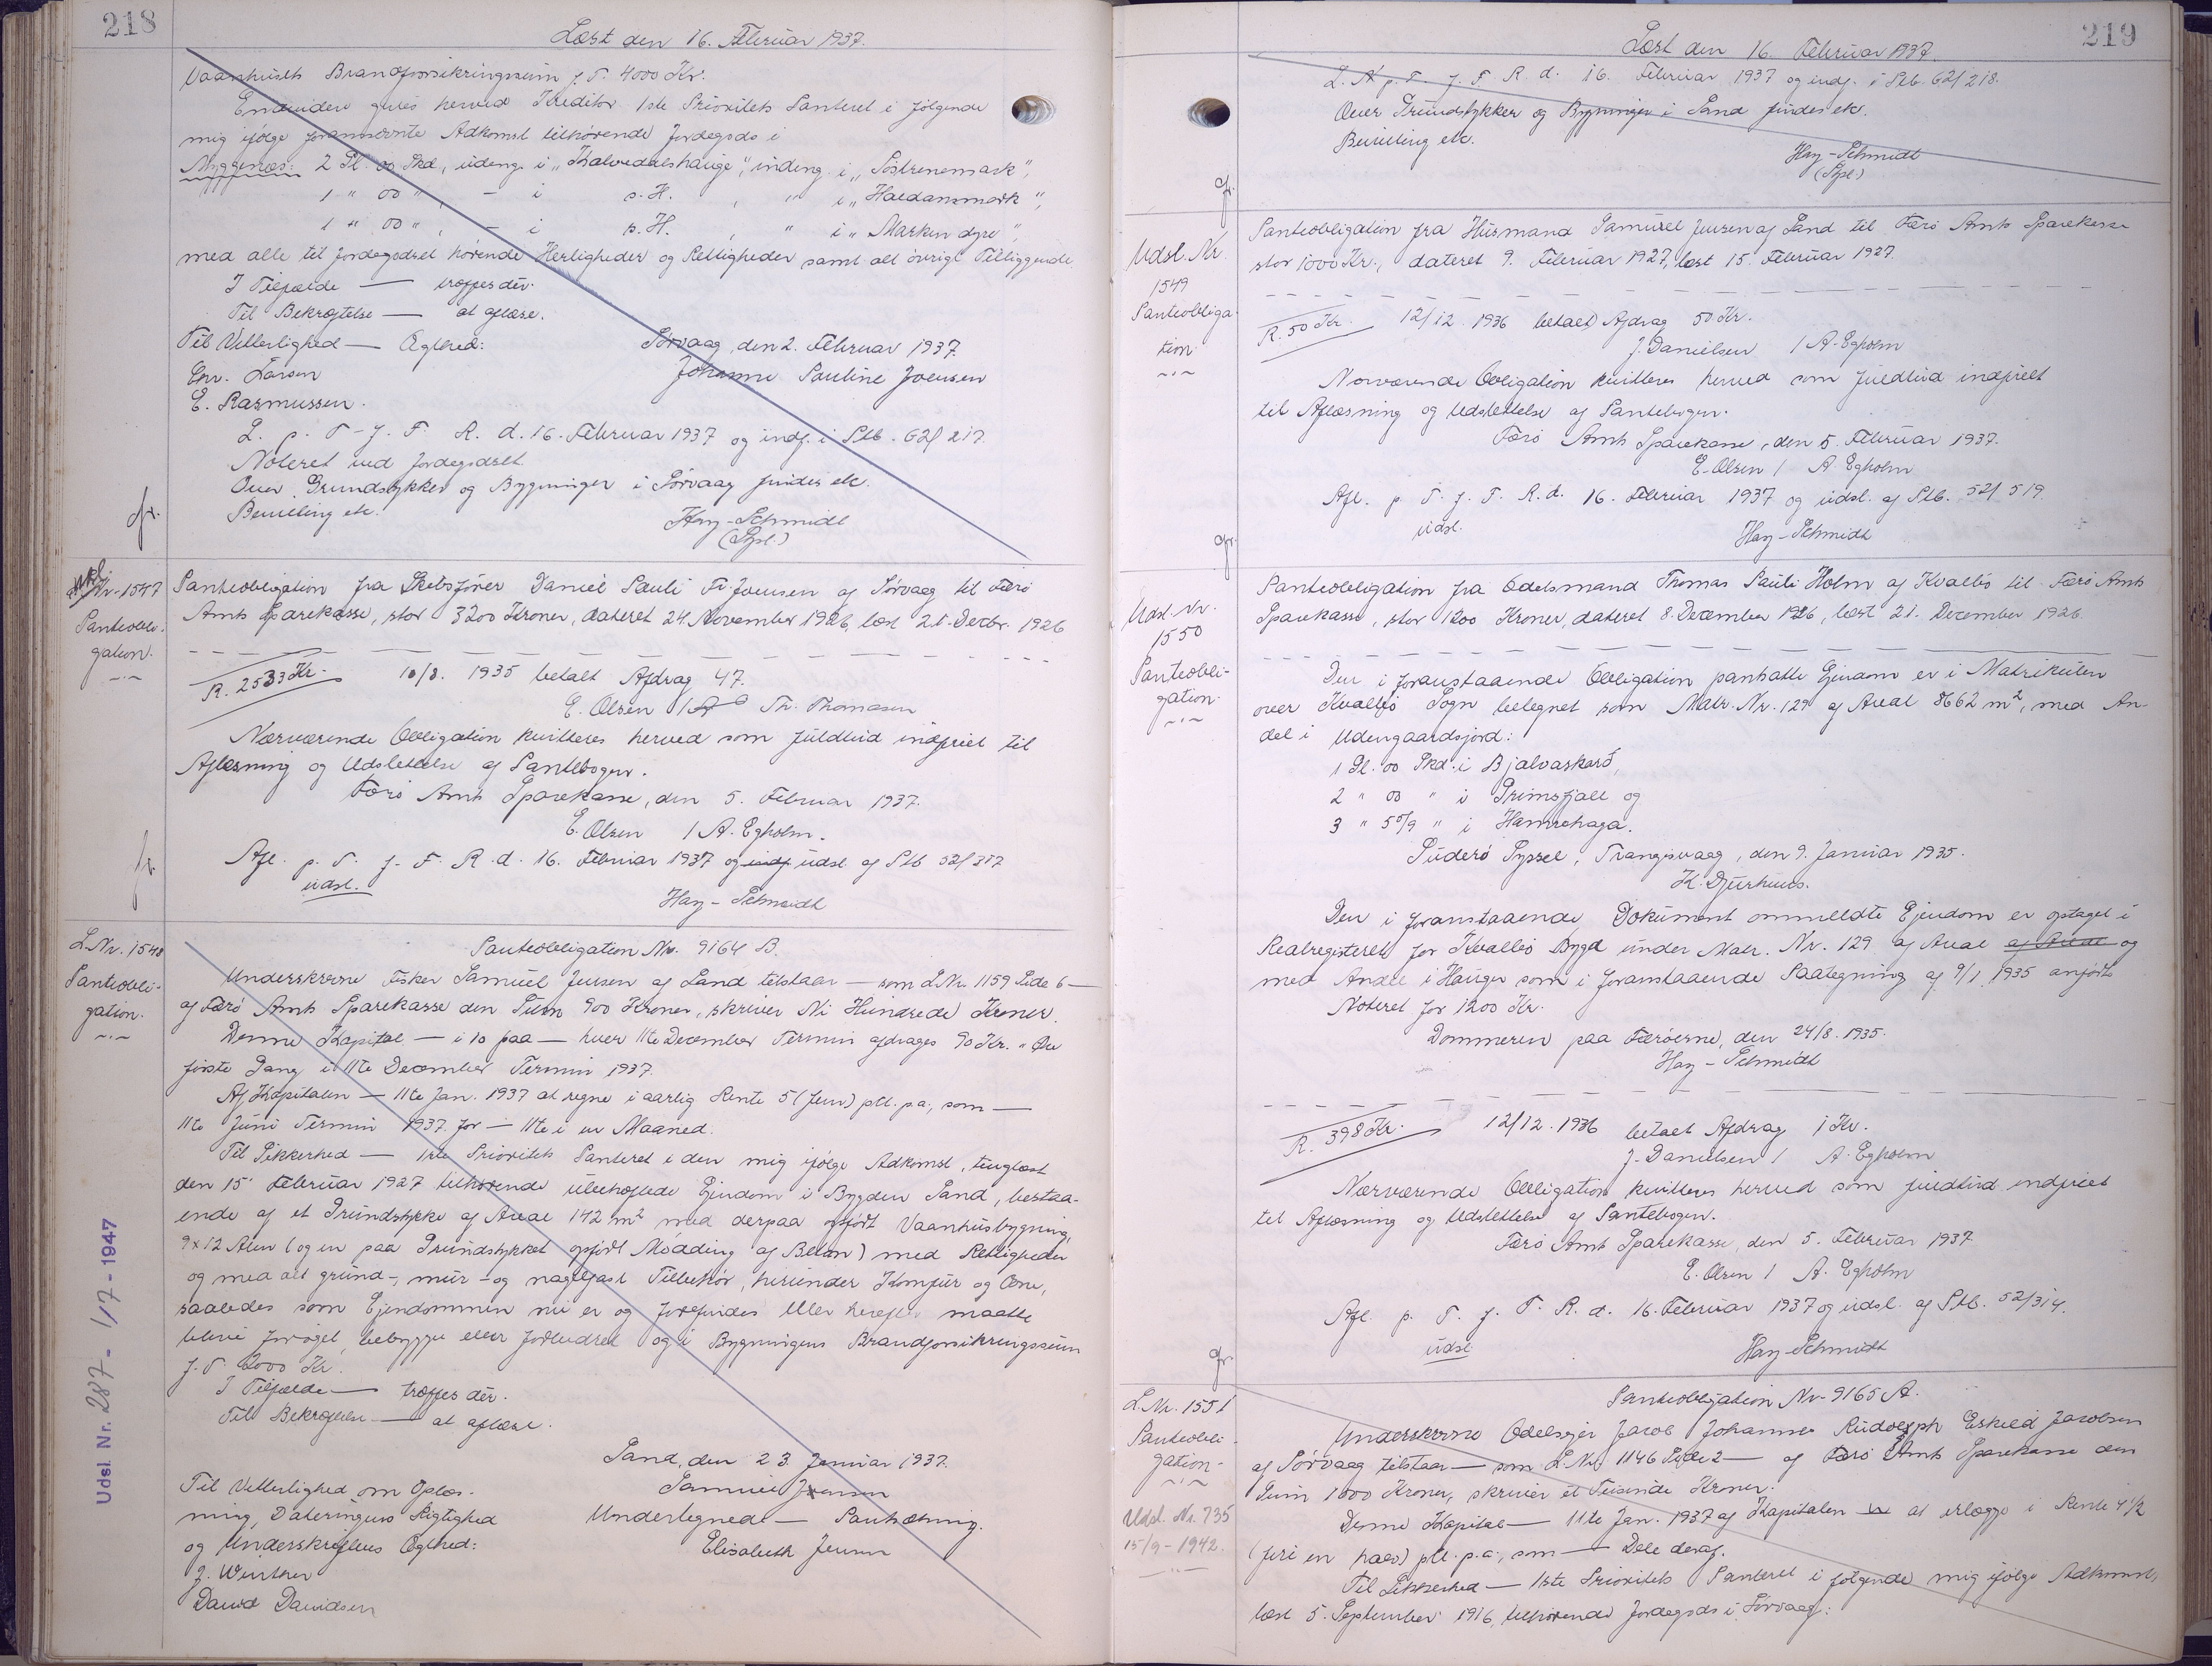 218
Læst den 16. Februar 1937.
Vaanhusets Brandforsikringssum f. T. 4000 Kr.
Endvidere gives herved Kreditor 1ste Prioritets Panteret i følgende
mig ifølge fornævnte Adkomst tilhørende Jordegods i
Myggenæs: 2 Gl. oo Skd., udeng. i „Kalvedalshauge", indeng. i „Sostrenemark",
1 " oo " , - i s. H. , " i „Haldansmørk",
1 " oo " , - i s. H. , " i „Marken dyre",
med alle til Jordegodset hørende Herligheder og Rettigheder samt alt øvrigt Tilliggende.
I Tilfælde — træffes dér.
Til Bekræftelse — at aflæse.
Til Vitterlighed — Ægthed:
Sørvaag, den 2. Februar 1937.
Chr. Larsen
Johanne Pauline Joensen
E. Rasmussen.
L. p. T. f. F. R. d. 16. Februar 1937 og indf. i Ptb. 62/217.
Noteret ved Jordegodset.
Over Grundstykker og Bygninger i Sørvaag findes etc.
Bevilling etc.
gr.
Hay-Schmidt
(Sysl.)
Udsl. Nr. 1547
Panteobli-
gation.
Panteobligation fra Skibsfører Daniel Pauli Fr. Joensen af Sørvaag til Færø
Amts Sparekasse, stor 3200 Kroner, dateret 24. November 1926, læst 21. Decbr. 1926
R. 2533 Kr. 10/8. 1935 betalt Afdrag 47.
E. Olsen / Th. Thomasen
Nærværende Obligation kvitteres herved som fuldtud indfriet til
Aflæsning og Udslettelse af Pantebogen.
Færø Amts Sparekasse, den 5. Februar 1937.
E. Olsen / A. Egholm.
gr.
Afl. p. T. f. F. R. d. 16. Februar 1937 og indf. udsl. af Ptb 52/317
udsl.
Hay-Schmidt
L. Nr. 1548
Panteobli-
gation.
Panteobligation Nr. 9164 B.
Underskrevne Fisker Samuel Jensen af Sand tilstaar — som L. Nr. 1159 Side 6 —
af Færø Amts Sparekasse den Sum 900 Kroner, skriver Ni Hundrede Kroner.
Denne Kapital — i 10 paa — hver 11te December Termin afdrages 90 Kr. " Øre
første Gang i 11te December Termin 1937.
Af Kapitalen — 11te Jan. 1937 at regne i aarlig Rente 5 (fem) pCt. p.a., som —
11te Juni Termin 1937 for — 11te i en Maaned.
Til Sikkerhed — 1ste Prioritets Panteret i den mig ifølge Adkomst, tinglæst
den 15. Februar 1927 tilhørende ubehæftede Ejendom i Bygden Sand, bestaa-
ende af et Grundstykke af Areal 142 m² med derpaa opført Vaanhusbygning,
9x12 Alen (og en paa Grundstykket opført Mødding af Beton) med Rettigheder
og med alt grund-, mur- og nagelfast Tilbehør, herunder Komfur og Ovne,
saaledes som Ejendommen nu er og forefindes eller herefter maatte
blive forøget, bebygget eller forbedret og i Bygningens Brandforsikringssum
f. T. 2000 Kr.
I Tilfælde — træffes dér.
Til Bekræftelse — at aflæse.
Sand, den 23 Januar 1937.
Til Vitterlighed om Oplæs-
Samuel Jensen
ning, Dateringens Rigtighed
Undertegnede — Pantsætning.
og Underskriftens Ægthed:
Elisabeth Jensen
J. Winther
David Davidsen
Udsl. Nr. 287 - 1/7 - 1947
219
Læst den 16. Februar 1937.
L. A p. T. f. F. R. d. 16. Februar 1937 og indf. i Ptb. 62/218.
Over Grundstykker og Bygninger i Sand findes etc.
Bevilling etc.
gr.
Hay-Schmidt
(Sysl.)
Udsl. Nr.
1549
Panteobliga-
tion
Panteobligation fra Husmand Samuel Jensen af Sand til Færø Amts Sparekasse
stor 1000 Kr., dateret 9. Februar 1927, læst 15. Februar 1927.
R. 50 Kr. 12/12. 1936 betalt Afdrag 50 Kr.
J. Danielsen / A. Egholm
Nærværende Obligation kvitteres herved som fuldtud indfriet
til Aflæsning og Udslettelse af Pantebogen.
Færø Amts Sparekasse, den 5. Februar 1937.
E. Olsen / A. Egholm
Afl. p. T. f. F. R. d. 16. Februar 1937 og udsl. af Ptb. 52/519.
udsl.
gr.
Hay-Schmidt
Udsl. Nr.
1550
Panteobli-
gation.
Panteobligation fra Odelsmand Thomas Pauli Holm af Kvalbø til Færø Amts
Sparekasse, stor 1200 Kroner, dateret 8. December 1926, læst 21. December 1926.
Den i foranstaaende Obligation pantsatte Ejendom er i Matrikulen
over Kvalbø Sogn betegnet som Matr. Nr. 129 af Areal 8662 m², med An-
del i Udengaardsjord:
1 Gl. oo Skd. i Bjalvaskarð,
2 " oo " i Grimsfjall og
3 " 5 5/9 " i Hamrehaga.
Suderø Syssel, Trangisvaag, den 9. Januar 1935.
K. Djurhuus.
Den i foranstaaende Dokument ommeldte Ejendom er optaget i
Realregisteret for Kvalbø Bygd under Matr. Nr. 129 af Areal af Areal og
med Andel i Hauger som i foranstaaende Paategning af 9/1 1935 anført
Noteret for 1200 Kr.
Dommeren paa Færøerne, den 24/8. 1935.
Hay-Schmidt
R. 398 Kr. 12/12. 1936 betalt Afdrag 1 Kr.
J. Danielsen / A. Egholm
Nærværende Obligation kvitteres herved som fuldtud indfriet
til Aflæsning og Udslettelse af Pantebogen.
Færø Amts Sparekasse, den 5. Februar 1937
E. Olsen / A. Egholm
Afl. p. T. f. F. R. d. 16. Februar 1937 og udsl. af Ptb. 52/314.
udsl.
gr.
Hay-Schmidt
L. Nr. 1551
Panteobli-
gation.
Udsl. Nr. 735
15/9 - 1942.
Panteobligation Nr. 9165 A.
Underskrevne Odelsejer Jacob Johannes Rudolph Eskild Jacobsen
af Sørvaag tilstaar — som L. Nr. 1146 Side 2 — af Færø Amts Sparekasse den
Sum 1000 Kroner, skriver et Tusinde Kroner.
Denne Kapital — 11te Jan. 1937 af Kapitalen at erlægge i Rente 4 1/2
(fire en halv) pCt. p.a., som — Dele deraf.
Til Sikkerhed — 1ste Prioritets Panteret i følgende mig ifølge Adkomst,
læst 5. September 1916, tilhørende Jordegods i Sørvaag: